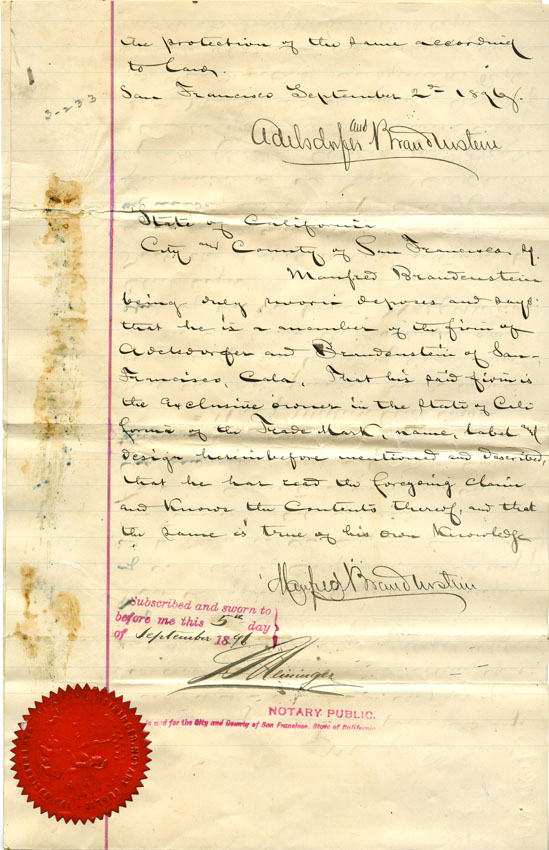 the protection of the same according
to law.
3-233
San Francisco September 2nd 1896.
Adelsdorfer and Brandenstein
State of California
City and County of San Francisco, ss.
Manfred Brandenstein
being duly sworn deposes and says:
that he is a member of the firm of
Adelsdorfer and Brandenstein of San-
Francisco, Cala, That his said firm is
the exclusive owner in the State of Cali
fornia of the Trade Mark, name, label &
design hereinbefore mentioned and described,
that he has read the foregoing claim
and knows the contents thereof, and that
the same is true of his own knowledge
Manfred Brandenstein
Subscribed and sworn to
before me this 5th day
of September 1896
NOTARY PUBLIC.
In and for the City and County of San Francisco, State of California